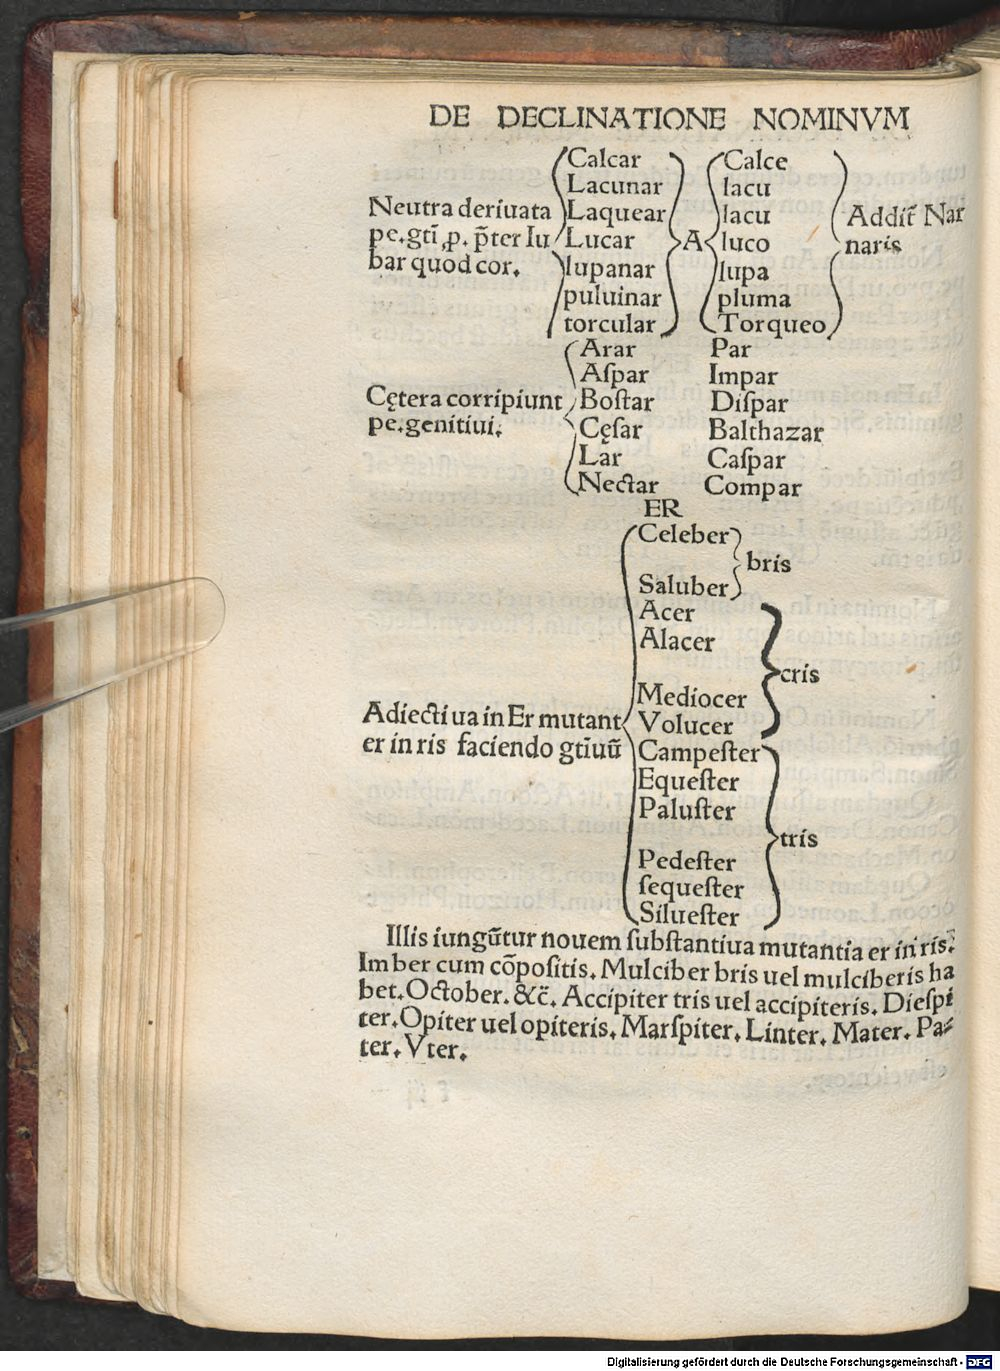 DE DECLINATIONE NOMINVM
Neutra deriuata
pe. gtĩ ,p. p̃ter Iu
bar quod cor.
Calcar
Lacunar
Laquear
Lucar
lupanar
puluinar
torcular
A
Calce
lacu
lacu
luco
lupa
pluma
Torqueo
Addit̃ Nar
naris
Cętera corripiunt
pe. genitiui.
Arar Par
Aſpar Impar
Boſtar Diſpar
Cęſar Balthazar
Lar Caſpar
Nectar Compar
ER
Adiectiua in Er mutant
er in ris faciendo gtĩuũ
Celeber
Saluber
bris
Acer
Alacer
Mediocer
Volucer
cris
Campeſter
Equeſter
Paluſter
Pedeſter
ſequeſter
Silueſter
tris
Illis iungũtur nouem ſubſtantiua mutantia er in ris.
Imber cum cõpoſitis. Mulciber bris uel mulciberis ha
bet. October. &c̃. Accipiter tris uel accipiteris. Dieſpi
ter. Opiter uel opiteris. Marſpiter. Linter. Mater. Pa⸗
ter. Vter.
Digitalisierung gefördert durch die Deutsche Forschungsgemeinschaft - DFG